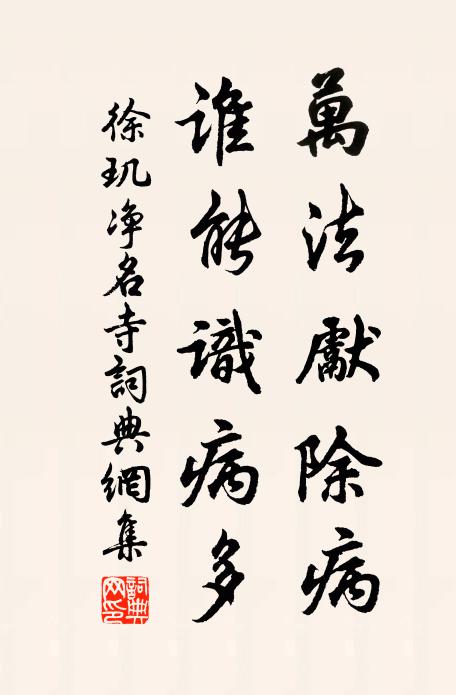 萬法獻除病
誰能識病多
徐玑净名寺詞典網集
詞典網印